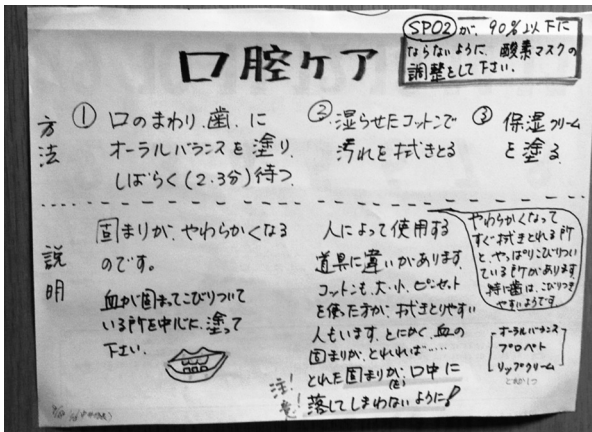 口腔ケア
SPO2が、90%以下に
ならないように、酸素マスクの
調整をして下さい.
方法
① 口のまわり.歯.に
オーラルバランスを塗り.
しばらく(2.3分)待つ.
② 湿らせたコットンで
汚れを拭きとる
③ 保湿クリーム
を塗る.
説明
固まりが、やわらかくなる
のです。
血が固まってこびりついて
いる所を中心に、塗って
下さい.
人によって使用する
道具に違いがあります.
コットンも、大・小、ピンセット
を使った方が、拭きとりやすい
人もいます、とにかく、血の
固まりが、とれれば……
とれた固まりが、口中に
落してしまわないように!
注!
意!
やわらかくなって
すぐ拭きとれる所
と、やっぱりこびりつい
ている所があります
特に歯は、こびりつき
やすいようです.
オーラルバランス
プロペト
リップクリーム